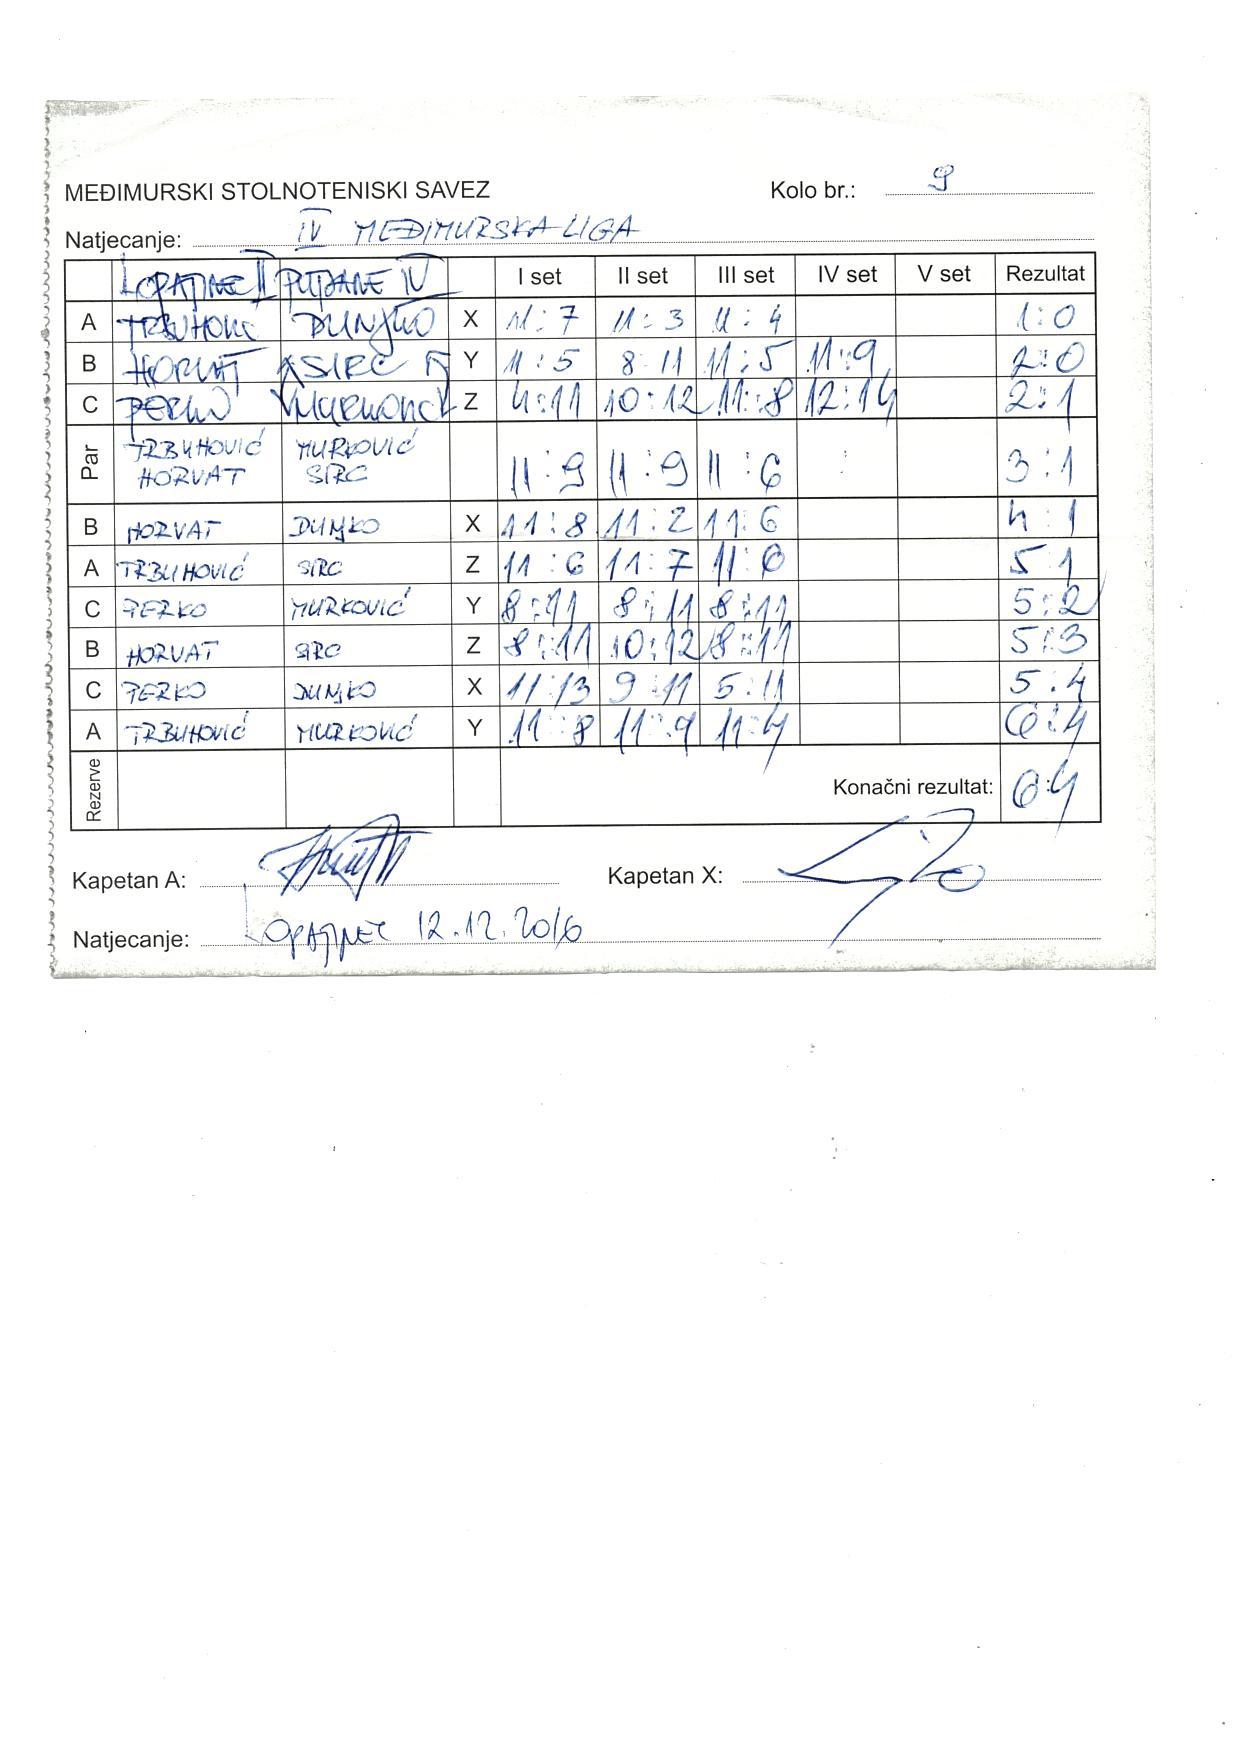 MEĐIMURSKI STOLNOTENISKI SAVEZ Kolo br.: 9
Natjecanje: IV MEĐIMURSKA LIGA
LOPATINEC II PUŠĆINE IV I set II set III set IV set V set Rezultat
A TRBUHOVIĆ DUNJKO X 11:7 11:3 11:4 1:0
B HORVAT SIRC Y 11:5 8:11 11:5 11:9 2:0
C PERKO MURKOVIĆ Z 4:11 10:12 11:8 12:14 2:1
Par TRBUHOVIĆ HORVAT MURKOVIĆ SIRC 11:9 11:9 11:6 3:1
B HORVAT DUNJKO X 11:8 11:2 11:6 4:1
A TRBUHOVIĆ SIRC Z 11:6 11:7 11:6 5:1
C PERKO MURKOVIĆ Y 8:11 8:11 8:11 5:2
B HORVAT SIRC Z 8:11 10:12 8:11 5:3
C PERKO DUNJKO X 11:13 9:11 5:11 5:4
A TRBUHOVIĆ MURKOVIĆ Y 11:8 11:9 11:4 6:4
Rezerve Konačni rezultat: 6:4
Kapetan A: Kapetan X:
Natjecanje: LOPATINEC 12.12.2016